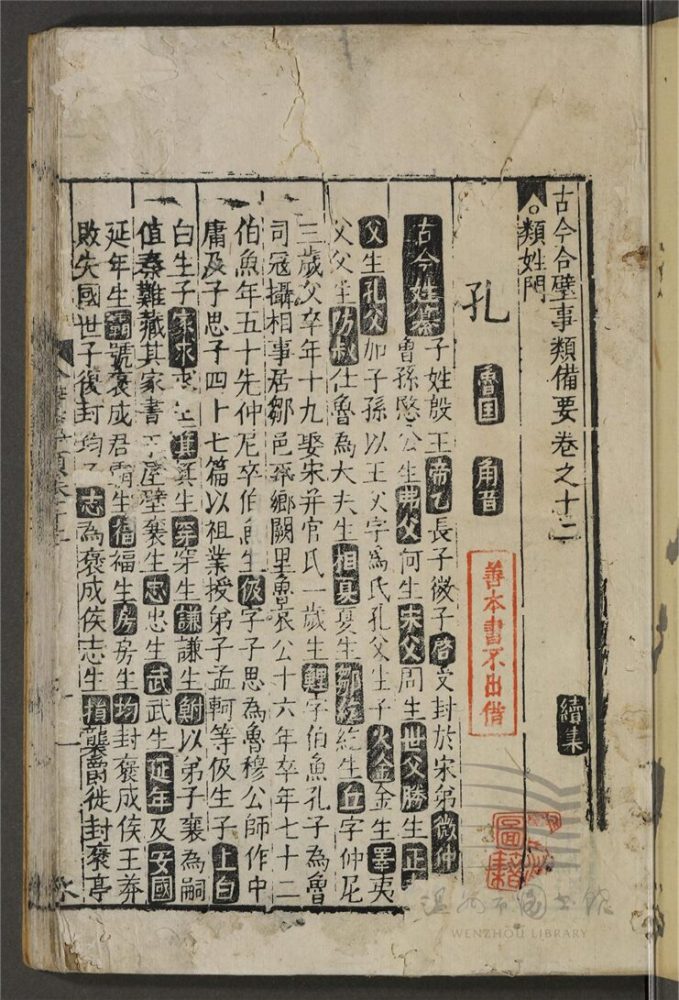 古今合璧事類備要卷之十二 續集
○類姓門
孔 魯国 角音
古今姓纂 子姓殷王帝乙長子微子啓受封於宋弟微仲
曾孫愍公生弗父何生宋父周生世父勝生正
父生孔父加子孫以王父字爲氏孔父生子火金金生睪夷
父父生防叔仕魯為大夫生相夏夏生鄒紇紇生丘字仲尼
三歲父卒年十九娶宋并官氏一歲生鯉字伯魚孔子為魯
司寇攝相事居鄒邑平鄉闕里魯哀公十六年卒年七十二
伯魚年五十先仲尼卒伯魚生伋字子思為魯穆公師作中
庸及子思子四十七篇以祖業授弟子孟軻等伋生子上白
白生子家求求生箕箕生穿穿生謙謙生鮒以弟子襄為嗣
值秦難藏其家書于屋壁襄生忠忠生武武生延年及安國
延年生霸號褒成君霸生福福生房房生均封褒成侯王莽
敗失國世子復封均子志為褒成侯志生損襲爵徙封褒亭
善本書不出借
WENZHOU LIBRARY